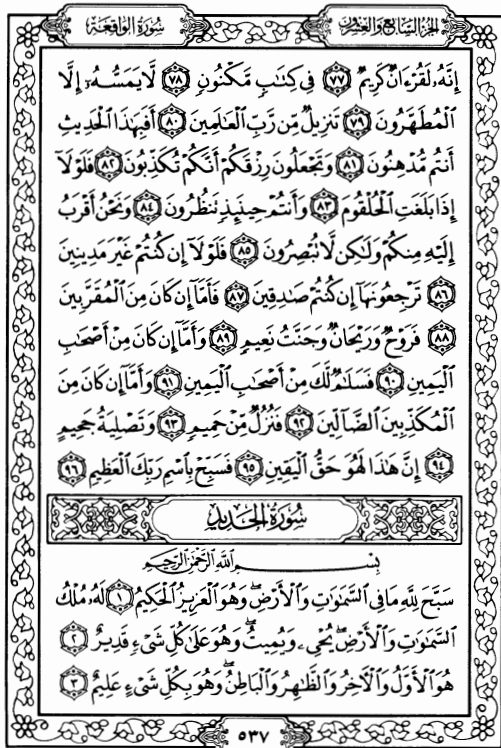 الجزء السابع والعشرون
سورة الواقعة
إِنَّهُۥ لَقُرْءَانٌ كَرِيمٌ ٧٧ فِى كِتَـٰبٍ مَّكْنُونٍ ٧٨ لَّا يَمَسُّهُۥٓ إِلَّا
ٱلْمُطَهَّرُونَ ٧٩ تَنزِيلٌ مِّن رَّبِّ ٱلْعَـٰلَمِينَ ٨٠ أَفَبِهَـٰذَا ٱلْحَدِيثِ
أَنتُم مُّدْهِنُونَ ٨١ وَتَجْعَلُونَ رِزْقَكُمْ أَنَّكُمْ تُكَذِّبُونَ ٨٢ فَلَوْلَآ
إِذَا بَلَغَتِ ٱلْحُلْقُومَ ٨٣ وَأَنتُمْ حِينَئِذٍ تَنظُرُونَ ٨٤ وَنَحْنُ أَقْرَبُ
إِلَيْهِ مِنكُمْ وَلَـٰكِن لَّا تُبْصِرُونَ ٨٥ فَلَوْلَآ إِن كُنتُمْ غَيْرَ مَدِينِينَ
٨٦ تَرْجِعُونَهَآ إِن كُنتُمْ صَـٰدِقِينَ ٨٧ فَأَمَّآ إِن كَانَ مِنَ ٱلْمُقَرَّبِينَ
٨٨ فَرَوْحٌ وَرَيْحَانٌ وَجَنَّتُ نَعِيمٍ ٨٩ وَأَمَّآ إِن كَانَ مِنْ أَصْحَـٰبِ
ٱلْيَمِينِ ٩٠ فَسَلَـٰمٌ لَّكَ مِنْ أَصْحَـٰبِ ٱلْيَمِينِ ٩١ وَأَمَّآ إِن كَانَ مِنَ
ٱلْمُكَذِّبِينَ ٱلضَّآلِّينَ ٩٢ فَنُزُلٌ مِّنْ حَمِيمٍ ٩٣ وَتَصْلِيَةُ جَحِيمٍ
٩٤ إِنَّ هَـٰذَا لَهُوَ حَقُّ ٱلْيَقِينِ ٩٥ فَسَبِّحْ بِٱسْمِ رَبِّكَ ٱلْعَظِيمِ ٩٦
سورة الحديد
بِسْمِ ٱللَّهِ ٱلرَّحْمَـٰنِ ٱلرَّحِيمِ
سَبَّحَ لِلَّهِ مَا فِى ٱلسَّمَـٰوَٰتِ وَٱلْأَرْضِ ۖ وَهُوَ ٱلْعَزِيزُ ٱلْحَكِيمُ ١ لَهُۥ مُلْكُ
ٱلسَّمَـٰوَٰتِ وَٱلْأَرْضِ ۖ يُحْىِۦ وَيُمِيتُ ۖ وَهُوَ عَلَىٰ كُلِّ شَىْءٍ قَدِيرٌ ٢
هُوَ ٱلْأَوَّلُ وَٱلْـَٔاخِرُ وَٱلظَّـٰهِرُ وَٱلْبَاطِنُ ۖ وَهُوَ بِكُلِّ شَىْءٍ عَلِيمٌ ٣
٥٣٧